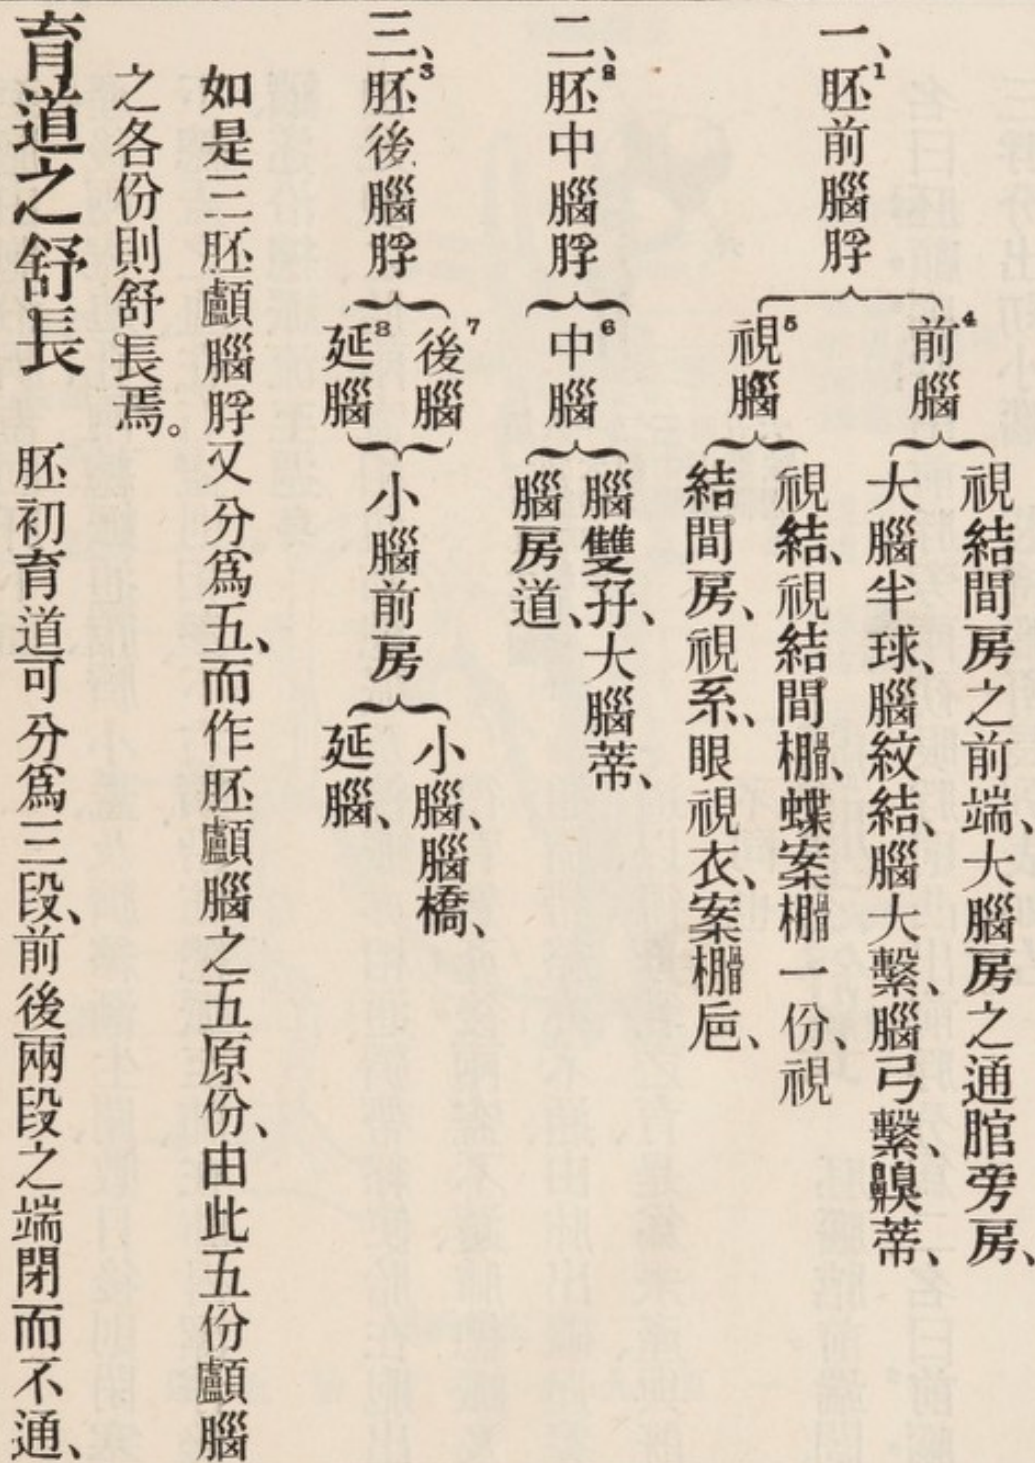 一、胚¹前腦脬
前⁴腦
視結間房之前端、大腦房之通腤旁房、
大腦半球、腦紋結、腦大繫、腦弓繫、齅蒂、
視⁵腦
視結、視結間棚、蝶案棚一份、視
結間房、視系、眼視衣、案棚巵、
二、胚²中腦脬
中⁶腦
腦雙孖、大腦蒂、
腦房道、
三、胚³後腦脬
後⁷腦
延⁸腦
小腦前房
小腦、腦橋、
延腦、
如是三胚顱腦脬又分爲五、而作胚顱腦之五原份、由此五份顱腦
之各份則舒長焉。
育道之舒長 胚初育道可分爲三段、前後兩段之端閉而不通、